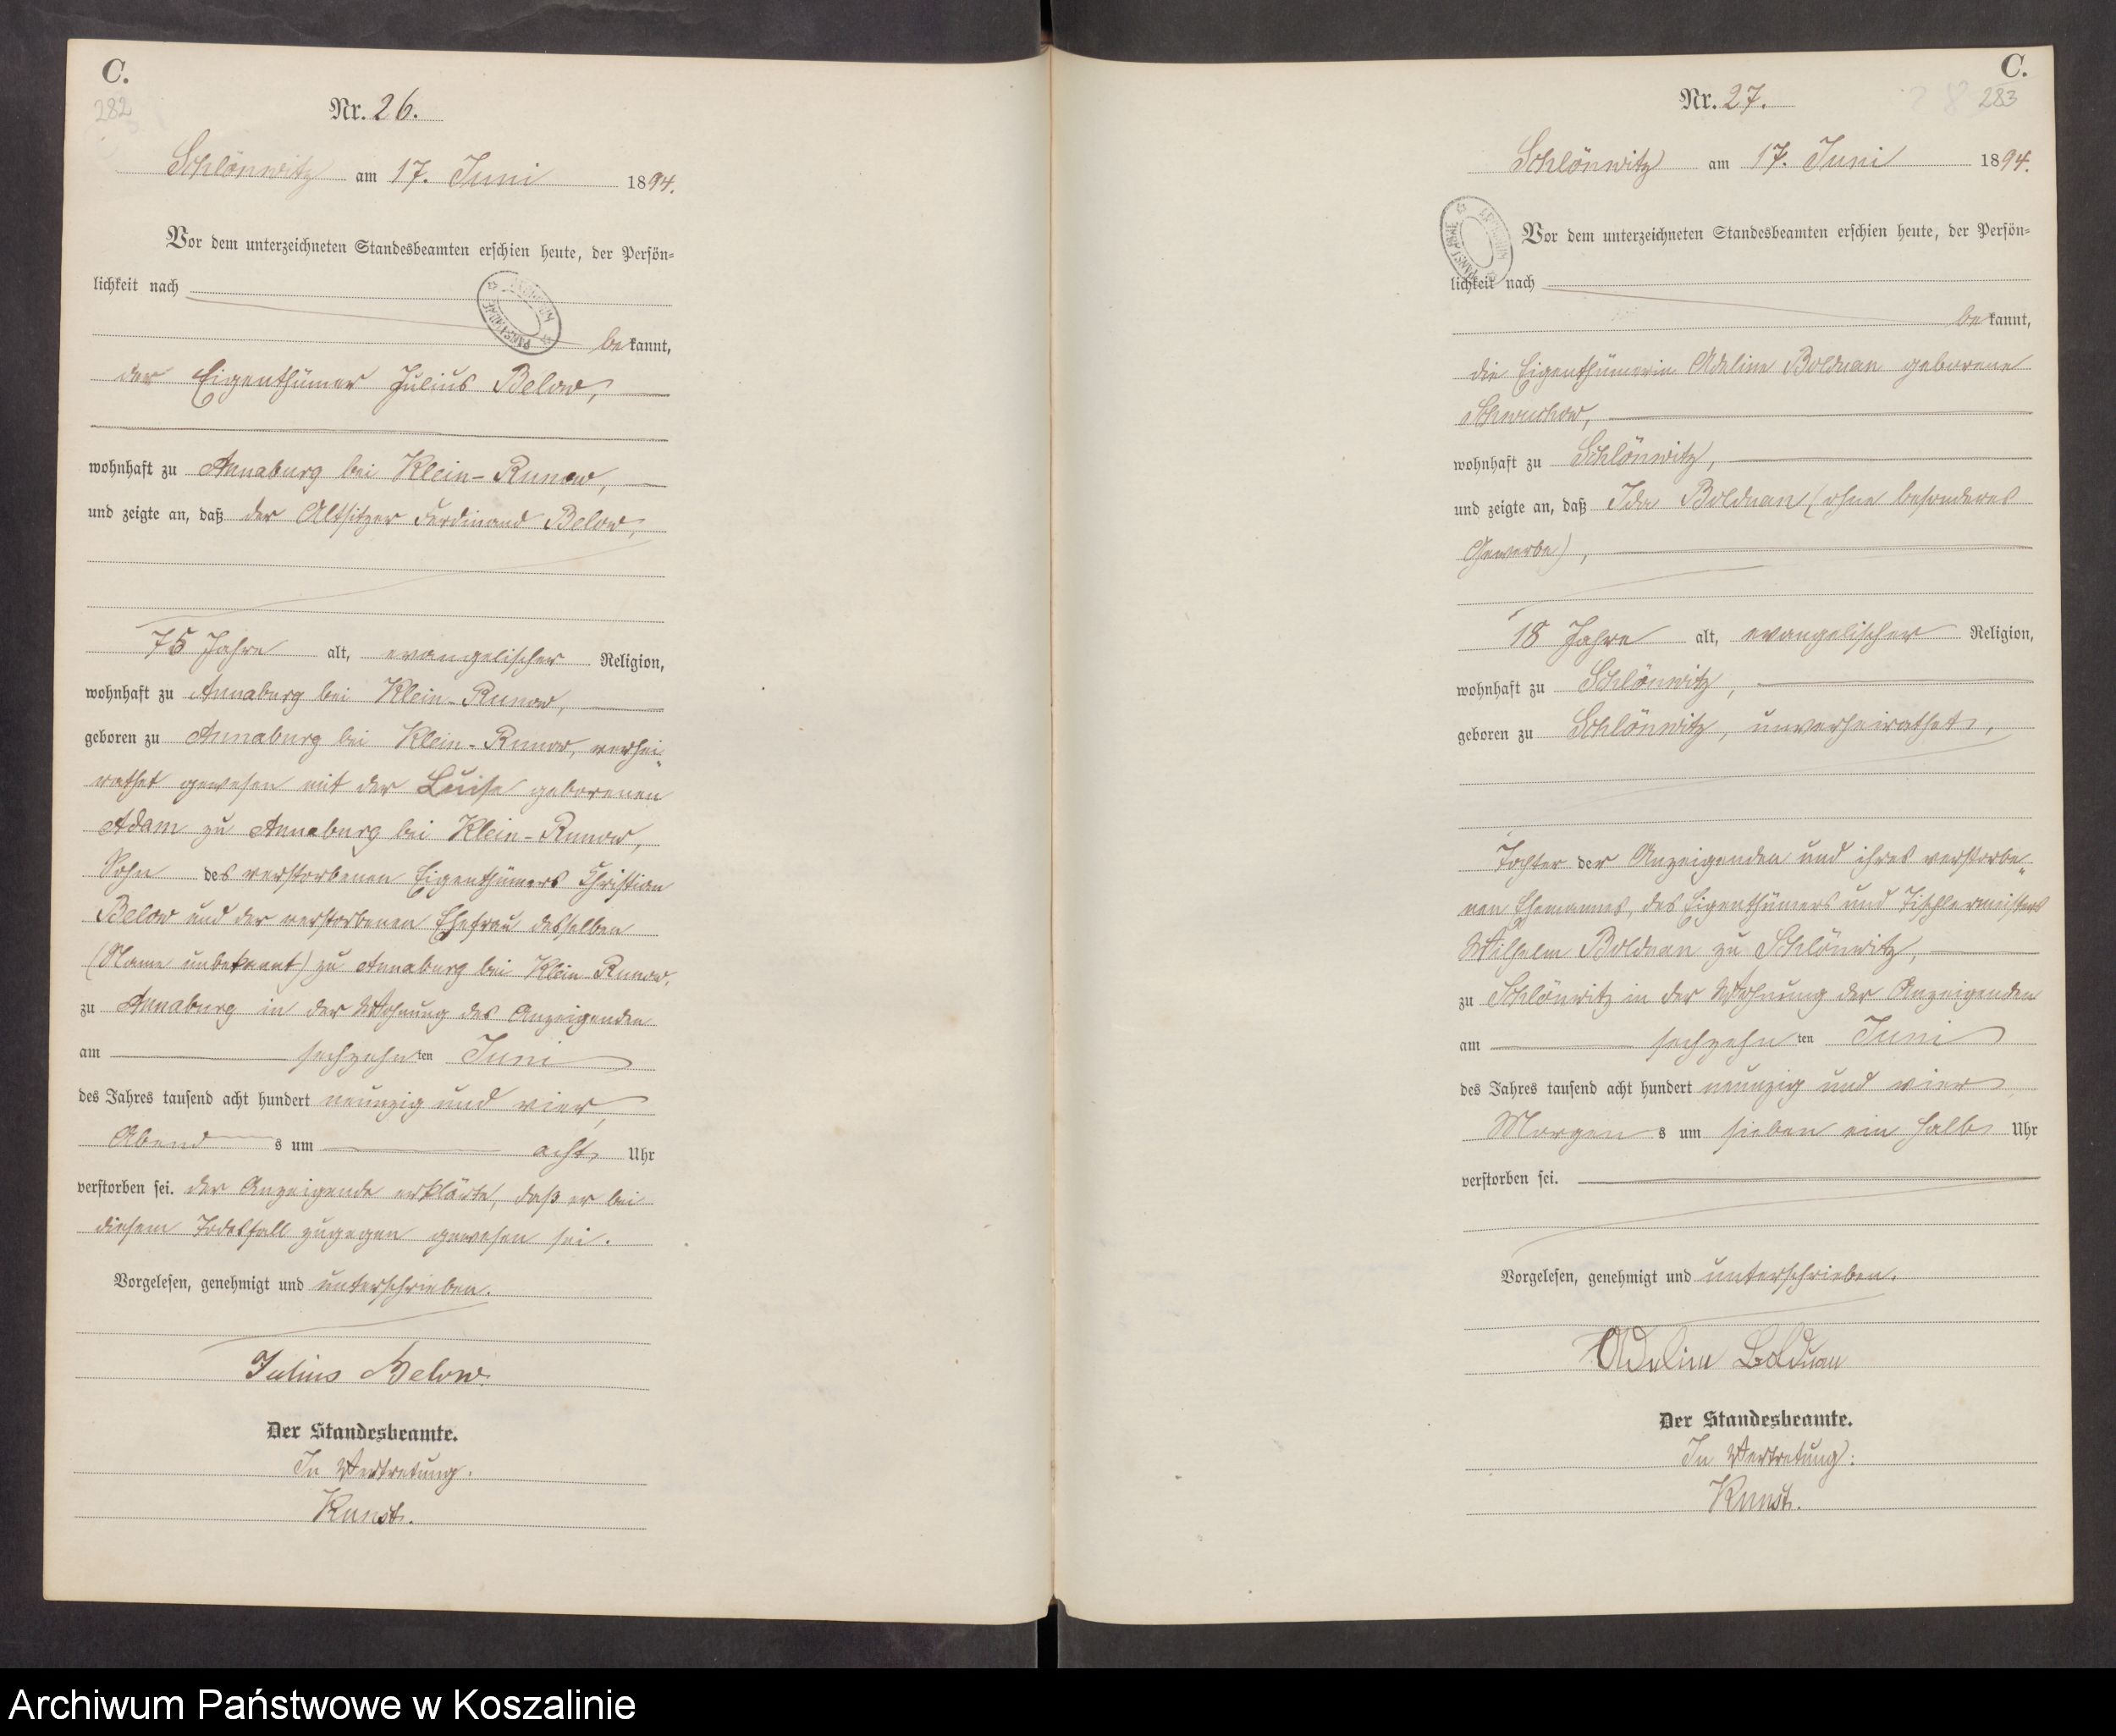 C.
282
Nr. 26.
Schlönwitz am 17. Juni 1894.
Vor dem unterzeichneten Standesbeamten erschien heute, der Persön-
lichkeit nach
bekannt,
der Eigenthümer Julius Below,
wohnhaft zu Annaburg bei Klein-Runow,
und zeigte an, daß der Altsitzer Ferdinand Below,
75 Jahre alt, evangelischer Religion,
wohnhaft zu Annaburg bei Klein-Runow,
geboren zu Annaburg bei Klein-Runow, verhei-
rathet gewesen mit der Luise geborenen
Adam zu Annaburg bei Klein-Runow,
Sohn des verstorbenen Eigenthümers Christian
Below und der verstorbenen Ehefrau desselben
(Name unbekannt) zu Annaburg bei Klein-Runow,
zu Annaburg in der Wohnung des Anzeigenden
am sechzehnten Juni
des Jahres tausend acht hundert neunzig und vier,
Abends um acht Uhr
verstorben sei. der Anzeigende erklärte, daß er bei
diesem Todesfall zugegen gewesen sei.
Vorgelesen, genehmigt und unterschrieben.
Julius Below.
Der Standesbeamte.
In Vertretung.
Kunst.
C.
283
Nr. 27.
Schlönwitz am 17. Juni 1894.
Vor dem unterzeichneten Standesbeamten erschien heute, der Persön-
lichkeit nach
bekannt,
die Eigenthümerin Adeline Bolduan geborene
Schwuchow,
wohnhaft zu Schlönwitz,
und zeigte an, daß Ida Bolduan (ohne besonderes
Gewerbe),
18 Jahre alt, evangelischer Religion,
wohnhaft zu Schlönwitz,
geboren zu Schlönwitz, unverheirathet,
Tochter der Anzeigenden und ihres verstorbe-
nen Ehemannes, des Eigenthümers und Tischlermeisters
Wilhelm Bolduan zu Schlönwitz,
zu Schlönwitz in der Wohnung der Anzeigenden
am sechzehnten Juni
des Jahres tausend acht hundert neunzig und vier
Morgens um sieben ein halb Uhr
verstorben sei.
Vorgelesen, genehmigt und unterschrieben.
Adeline Bolduan
Der Standesbeamte.
In Vertretung:
Kunst.
Archiwum Państwowe w Koszalinie